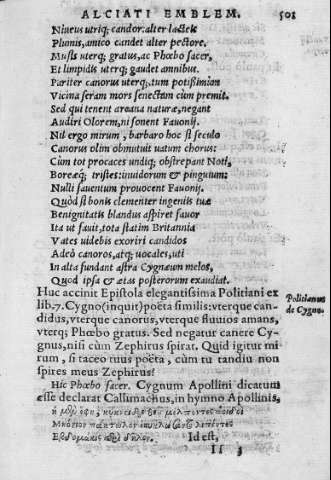 ALCIATI EMBLEM. 501
Niueus utriq; candor: alter lacteis
Plumis, amico candet alter pectore.
Musis uterq; gratus, ac Phœbo sacer,
Et limpidis uterq; gaudet amnibus.
Pariter canorus uterq;, tum potißimùm
Vicina seram mors senectam cùm premit.
Sed qui tenent arcana naturæ, negant
Audiri Olorem, ni sonent Fauonij.
Nil ergo mirum, barbaro hoc si seculo
Canorus olim obmutuit uatum chorus:
Cùm tot procaces undiq; obstrepant Noti,
Boreæq; tristes: inuidorum & pinguium:
Nulli fauentum prouocent Fauonij.
Quòd si bonis clementer ingeniis tuæ
Benignitatis blandus aspiret fauor
Ita ut fauit, tota statim Britannia
Vates uidebis exoriri candidos
Adeò canoros, atq; uocales, uti
In alta fundant astra Cygnæum melos,
Quod ipsa & ætas posterorum exaudiat.
Huc accinit Epistola elegantissima Politiani ex
lib. 7. Cygno (inquit) poëta similis: vterque can-
didus, vterque canorus, vterque fluuios amans,
vterq; Phœbo gratus. Sed negatur canere Cy-
gnus, nisi cùm Zephirus spirat. Quid igitur mi
rum, si taceo tuus poëta, cùm tu tandiu non
spires meus Zephirus?
Politianus
de Cygno.
Hic Phœbo sacer. Cygnum Apollini dicatum
esse declarat Callimachus, in hymno Apollinis,
Id est,
Ii 3